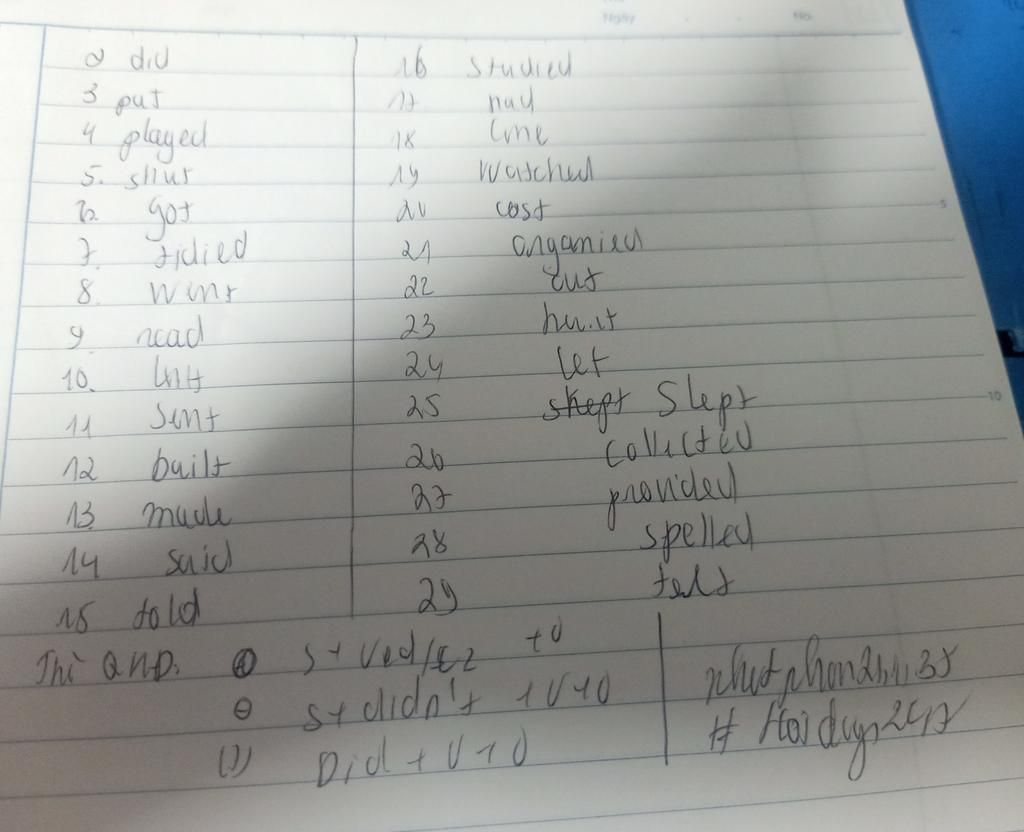 Ngày No.
2 did
3 put
4 played
5. shut
6. got
7. tidied
8. went
9. read
10. left
11 sent
12 built
13 made
14 said
15 told
16 studied
17 had
18 came
19 watched
20 cost
21 organied
22 cut
23 hurt
24 let
25 Slept
26 collected
27 provided
28 spelled
29 felt
5
10
Thì QKĐ. ⊕ S + Ved/ +O
⊖ S + didn't + V + O
(?) Did + V + O
#